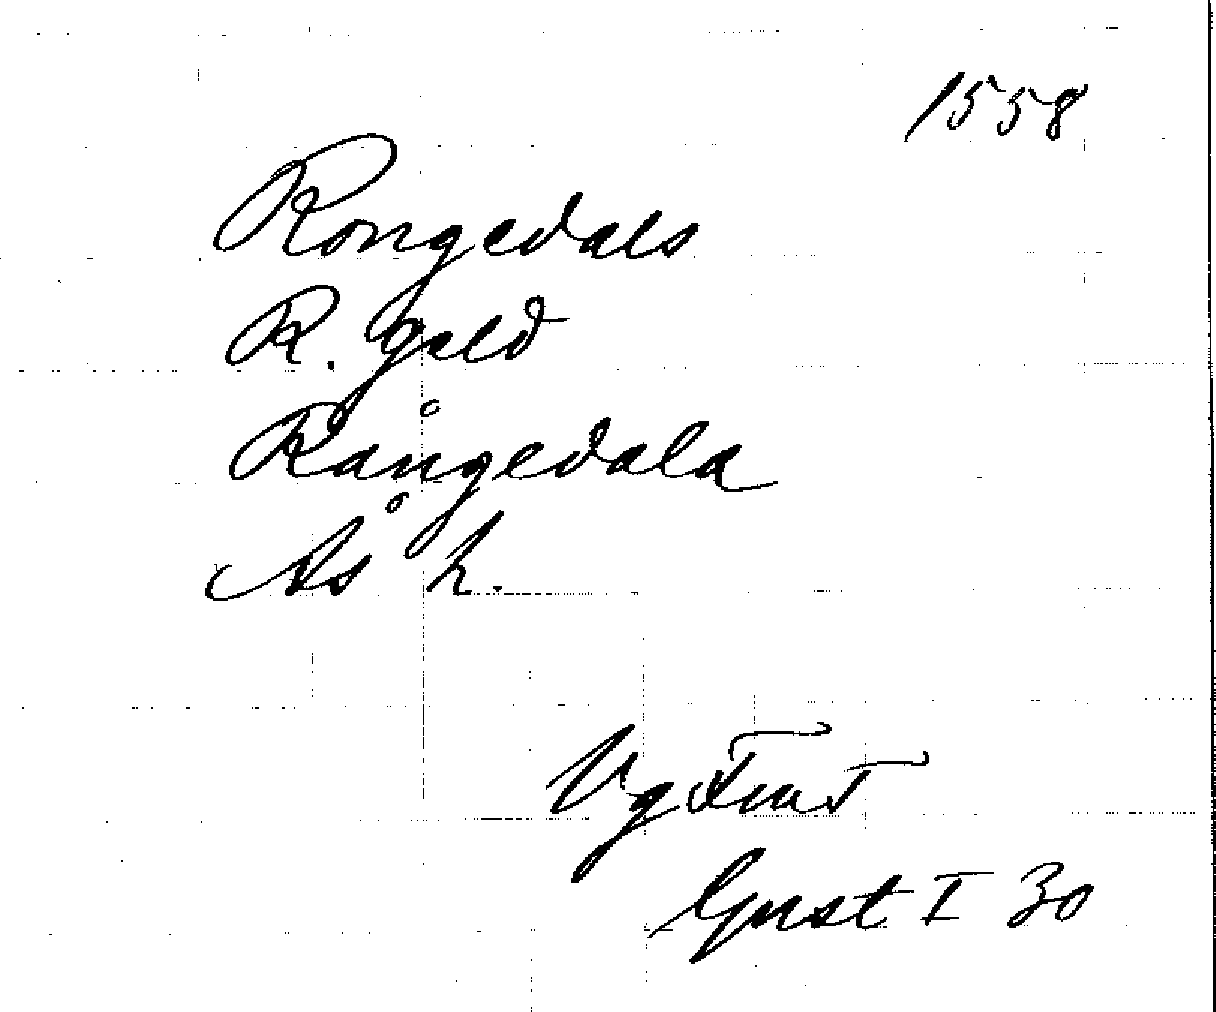 1558
Rongedals
R. geld
Rångedala
Ås h.
Vg
Gust I 30